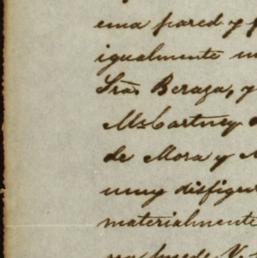 una pared y
igualmente
Sras Beraza, y
McCartney
de Mora y
muy disfigu
materialmente